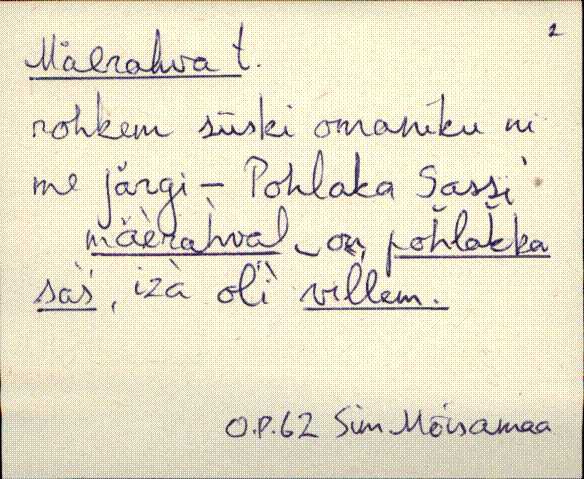 2
Mäerahva t.
rohkem siiski omaniku ni
me järgi – Pohlaka Sassi
mäèrahval on, pohlakka
sàs, izà oli villem.
O.P.62 Sim Mõisamaa